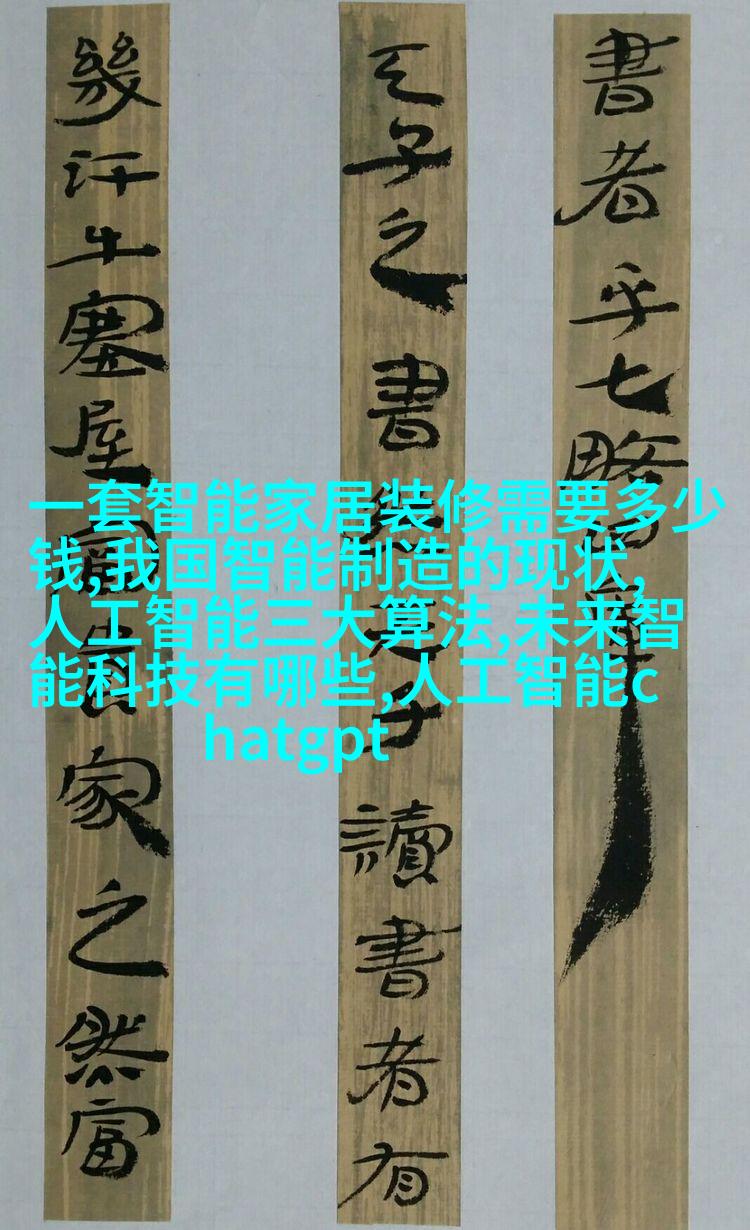 書者乎七略四庫
天子之書然天子讀書者有
幾汗牛塞屋富貴家之然富
一套智能家居装修需要多少
钱,我国智能制造的现状,
人工智能三大算法,未来智
能科技有哪些,人工智能c
hatgpt